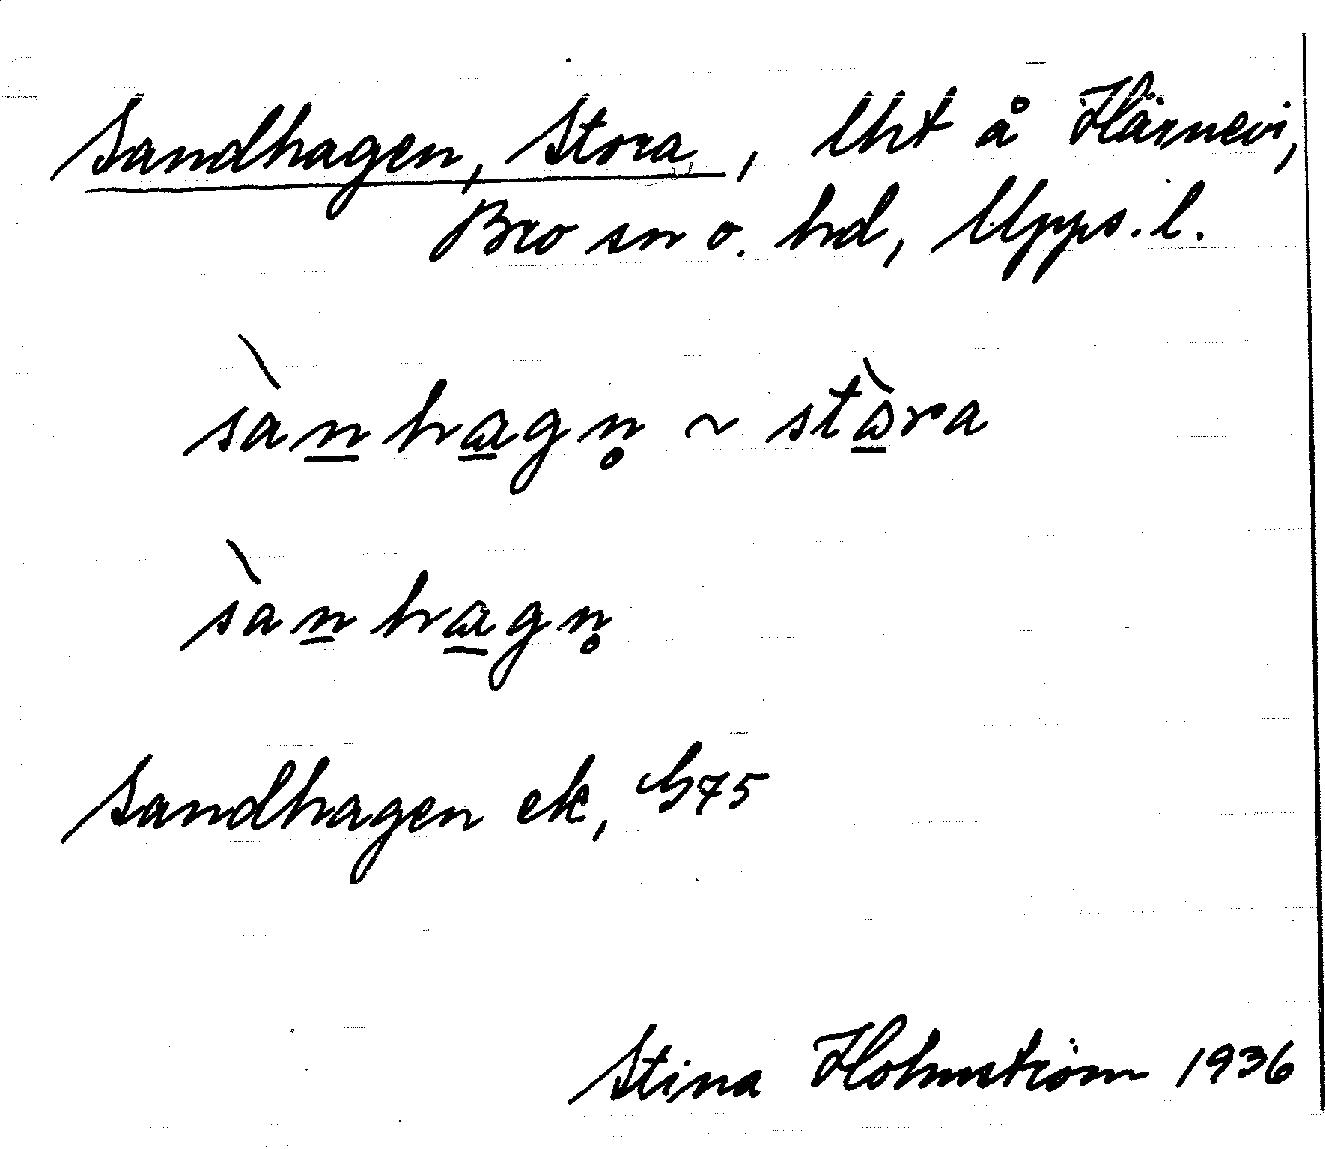 Sandhagen, Stora, lht å Härnevi,
Bro sn o. hd, Upps. l.
sànhagn̥ ~ stòra
sànhagn̥
Sandhagen ek, G75
Stina Holmström 1936